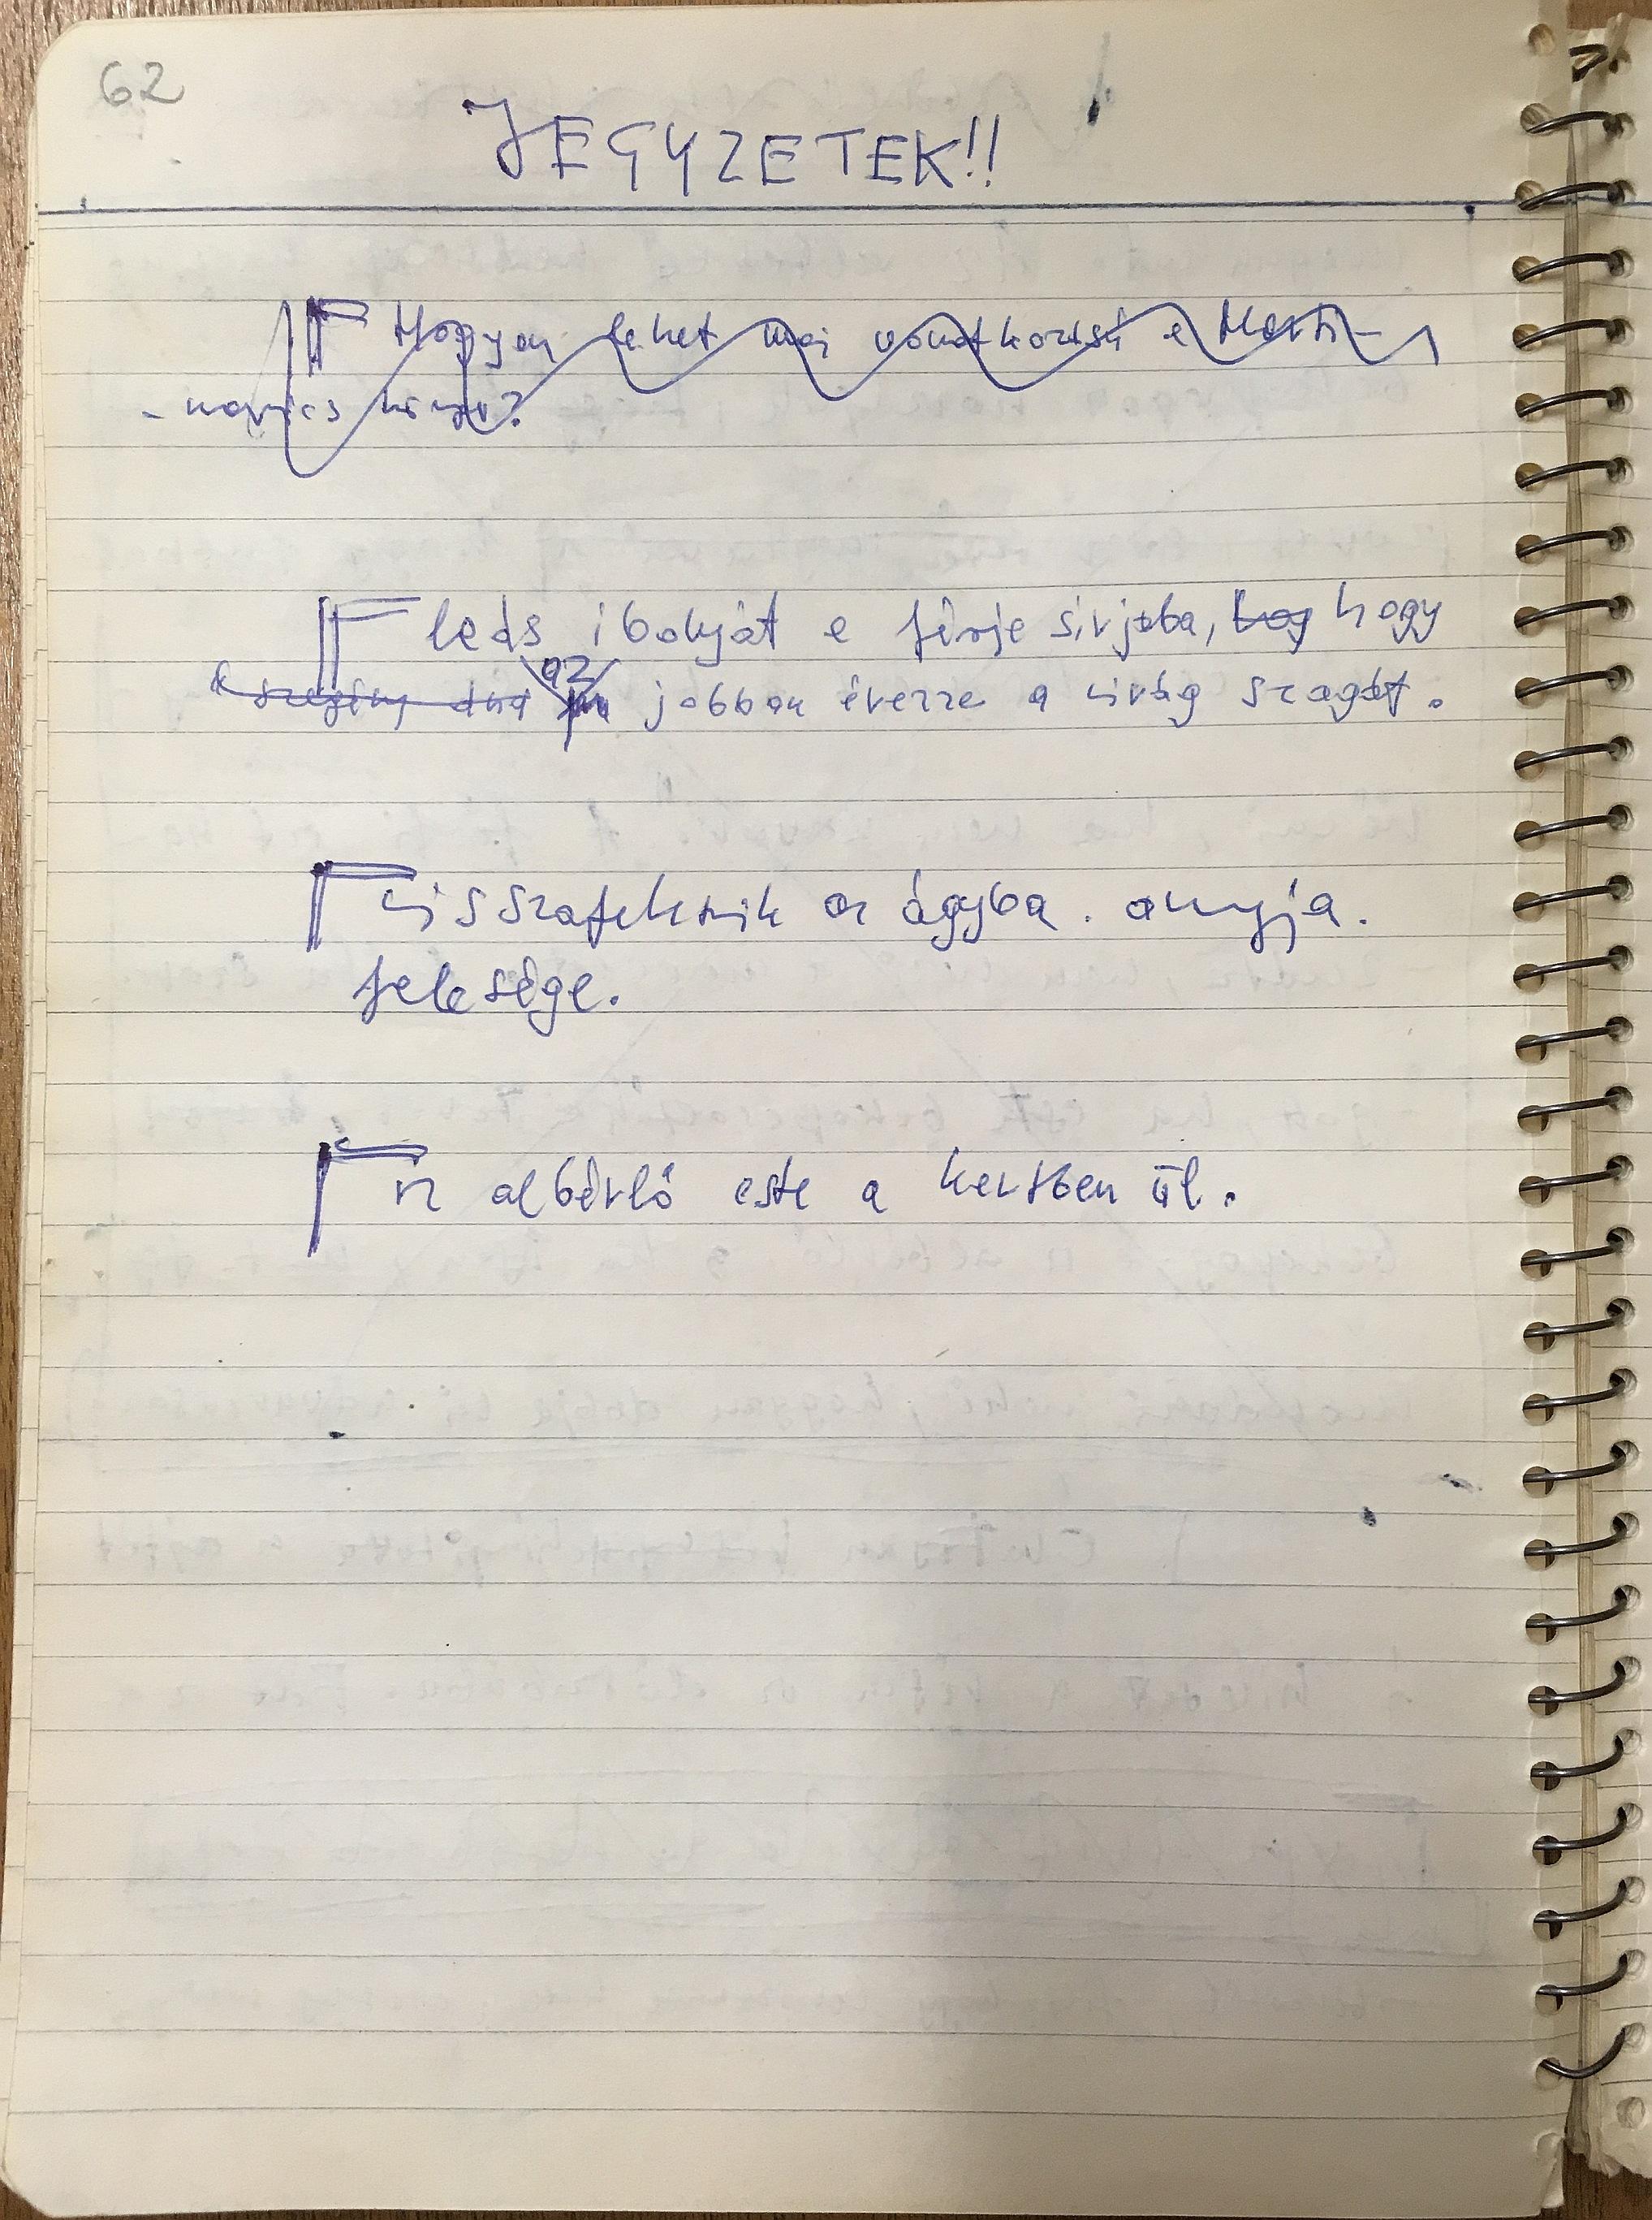 62
JEGYZETEK!!
Hogyan lehet mai vonatkozású a Marti-
-novics
leás ibolyját a férje sírjába, hog hogy
a szegény az jobban érezze a virág szagát.
visszafekszik az ágyba. anyja.
felesége.
az albérlő este a kertben ül.